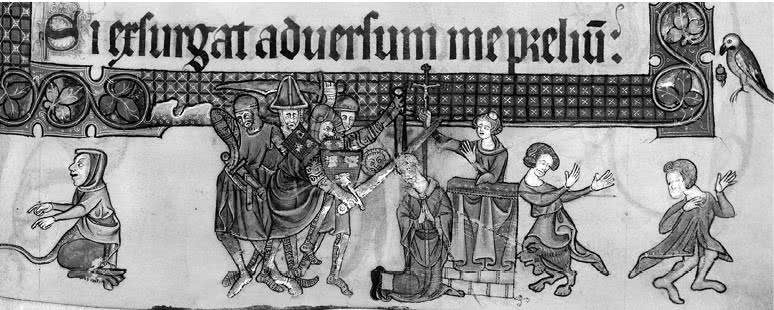 Si exsurgat aduersum me preliū: